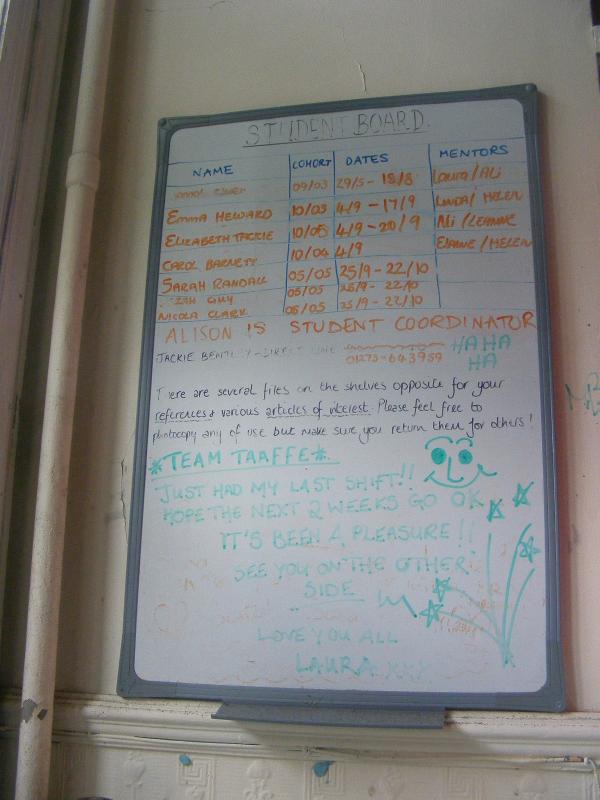 STUDENT BOARD.
NAME COHORT DATES MENTORS
09/03 29/5 - 18/8 Laura/Ali
Emma HEWARD 10/03 4/9 - 17/9 LINDA/HELEN
ELIZABETH TACKIE 10/05 4/9 - 20/9 Ali/LEANNE
CAROL BARNETT 10/04 4/9 ELAINE/HELEN
SARAH RANDALL 05/05 25/9 - 22/10
GUY 05/05 25/9 - 22/10
NICOLA CLARK 05/05 25/9 - 22/10
ALISON IS STUDENT COORDINATOR
JACKIE BENTLEY - DIRECT LINE 01273-643959 HA HA
HA
There are several files on the shelves opposite for your
references & various articles of interest. Please feel free to
photocopy any of use but make sure you return them for others!
*TEAM TAAFFE*
JUST HAD MY LAST SHIFT!!
HOPE THE NEXT 2 WEEKS GO OK
IT'S BEEN A PLEASURE!!
SEE YOU ON THE OTHER
SIDE
LOVE YOU ALL
LAURA XXX